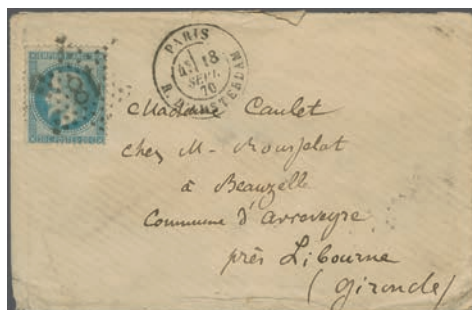 PARIS
18
SEPT.
70
R. D'AMSTERDAM
Madame Caulet
chez M. Rousselot
à Beauzelle
Commune d'Arveyre
près Libourne
(Gironde)